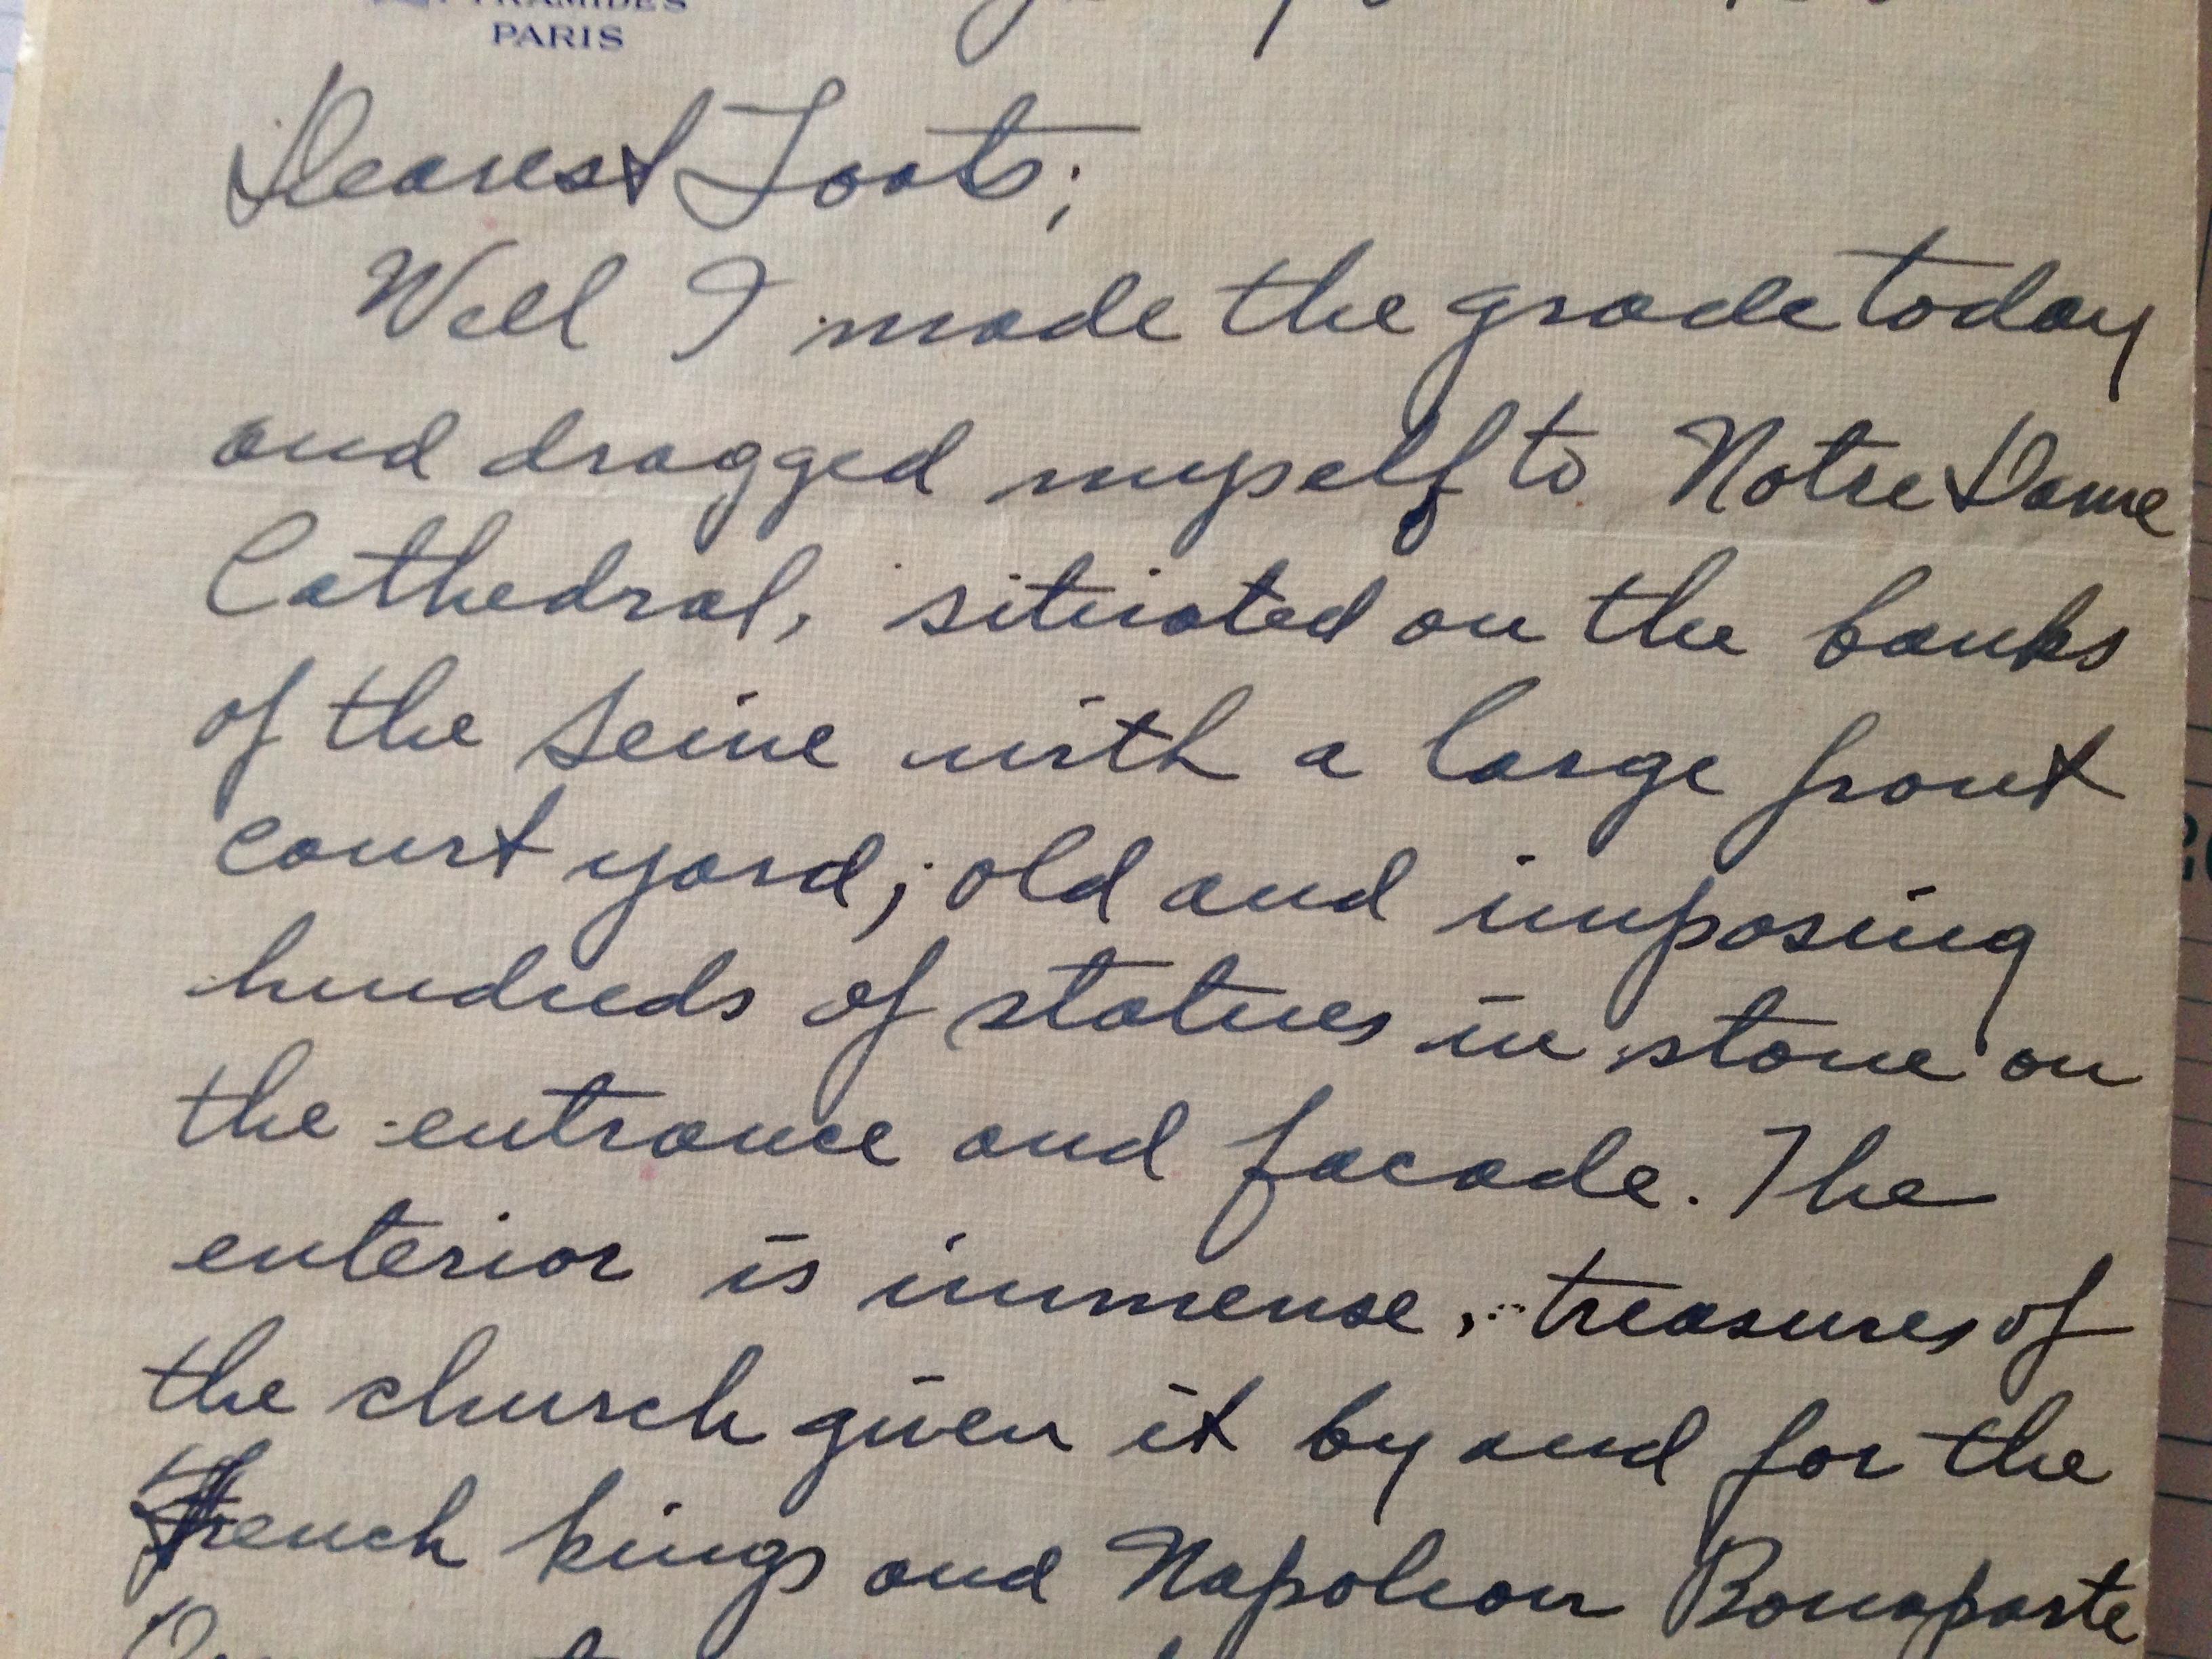 PYRAMIDES
PARIS
Dearest Toots;
Well I made the grade today
and dragged myself to Notre Dame
Cathedral, situated on the banks
of the Seine with a large front
court yard; old and imposing
hundreds of statues in stone on
the entrance and facade. The
enterior is immense, treasures of
the church given it by and for the
French kings and Napoleon Bonaparte